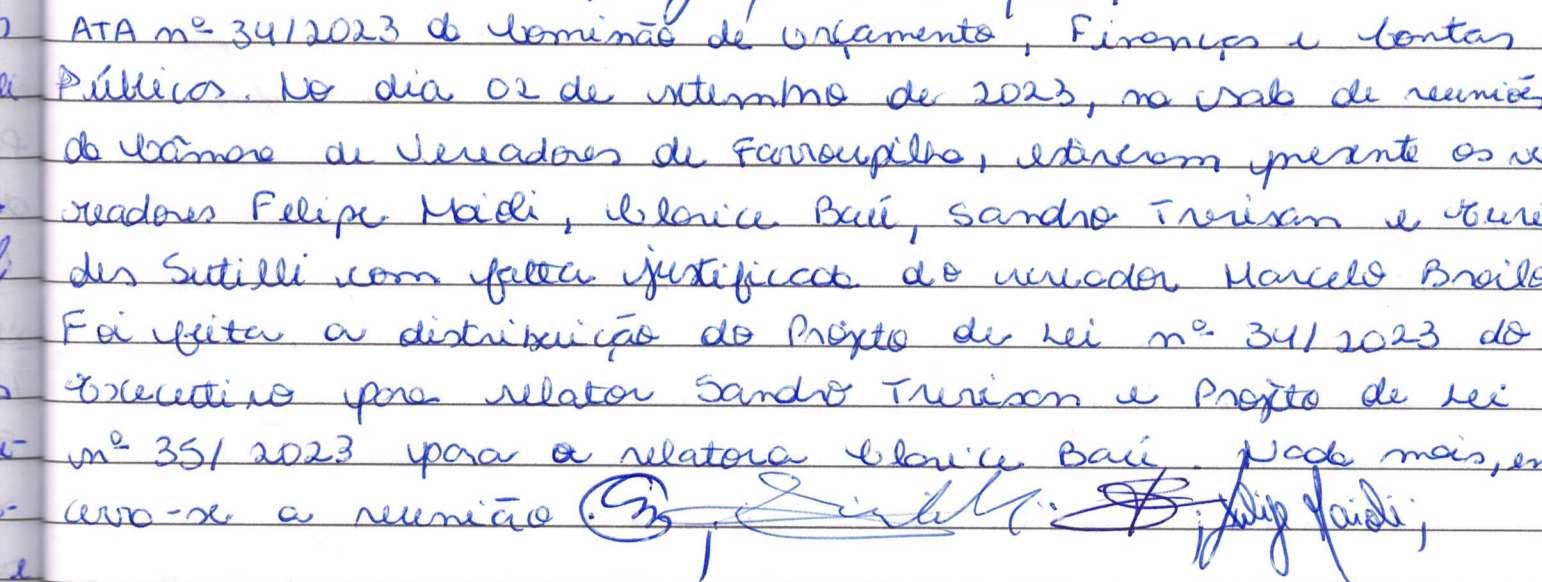 ATA nº 34/2023 da Comissão de Orçamento, Finanças e Contas
Públicas. No dia 02 de setembro de 2023, na sala de reuniõe
da Câmara de Vereadores de Farroupilha, estiveram presente os ve
readores Felipe Maioli, Clarice Baú, Sandro Trevisan e Euri
des Sutilli com falta justificada do vereador Marcelo Broilo
Foi feita a distribuição do Projeto de Lei nº 34/2023 do
Executivo para relator Sandro Trevisan e Projeto de Lei
nº 35/2023 para a relatora Clarice Baú. Nada mais, en
cerra-se a reunião Felip Maioli,